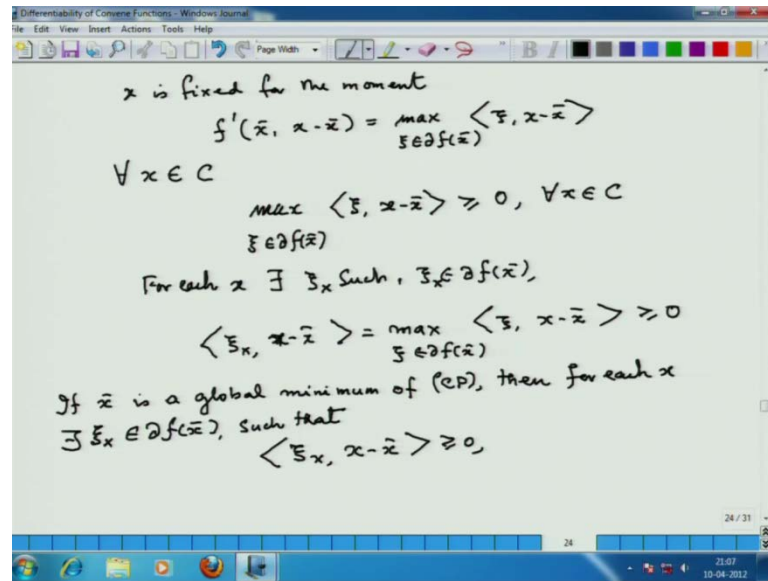 Differentiability of Convene Functions - Windows Journal
File Edit View Insert Actions Tools Help
Page Width
B I
x is fixed for the moment
f'(x̄, x-x̄) = max ⟨ξ, x-x̄⟩
ξ∈∂f(x̄)
∀ x ∈ C
max ⟨ξ, x-x̄⟩ ≥ 0, ∀x∈C
ξ∈∂f(x̄)
For each x ∃ ξₓ Such, ξₓ∈ ∂f(x̄),
⟨ξₓ, x-x̄⟩ = max ⟨ξ, x-x̄⟩ ≥ 0
ξ∈∂f(x̄)
If x̄ is a global minimum of (CP), then for each x
∃ ξₓ ∈ ∂f(x̄), such that
⟨ξₓ, x-x̄⟩ ≥ 0,
24 / 31
24
21:07
10-04-2012